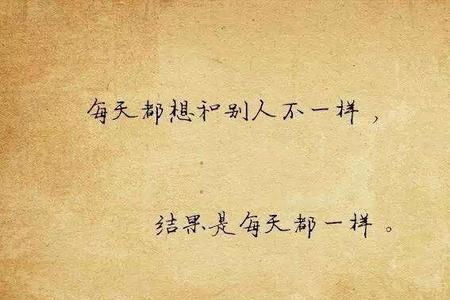 每天都想和别人不一样，
结果是每天都一样。